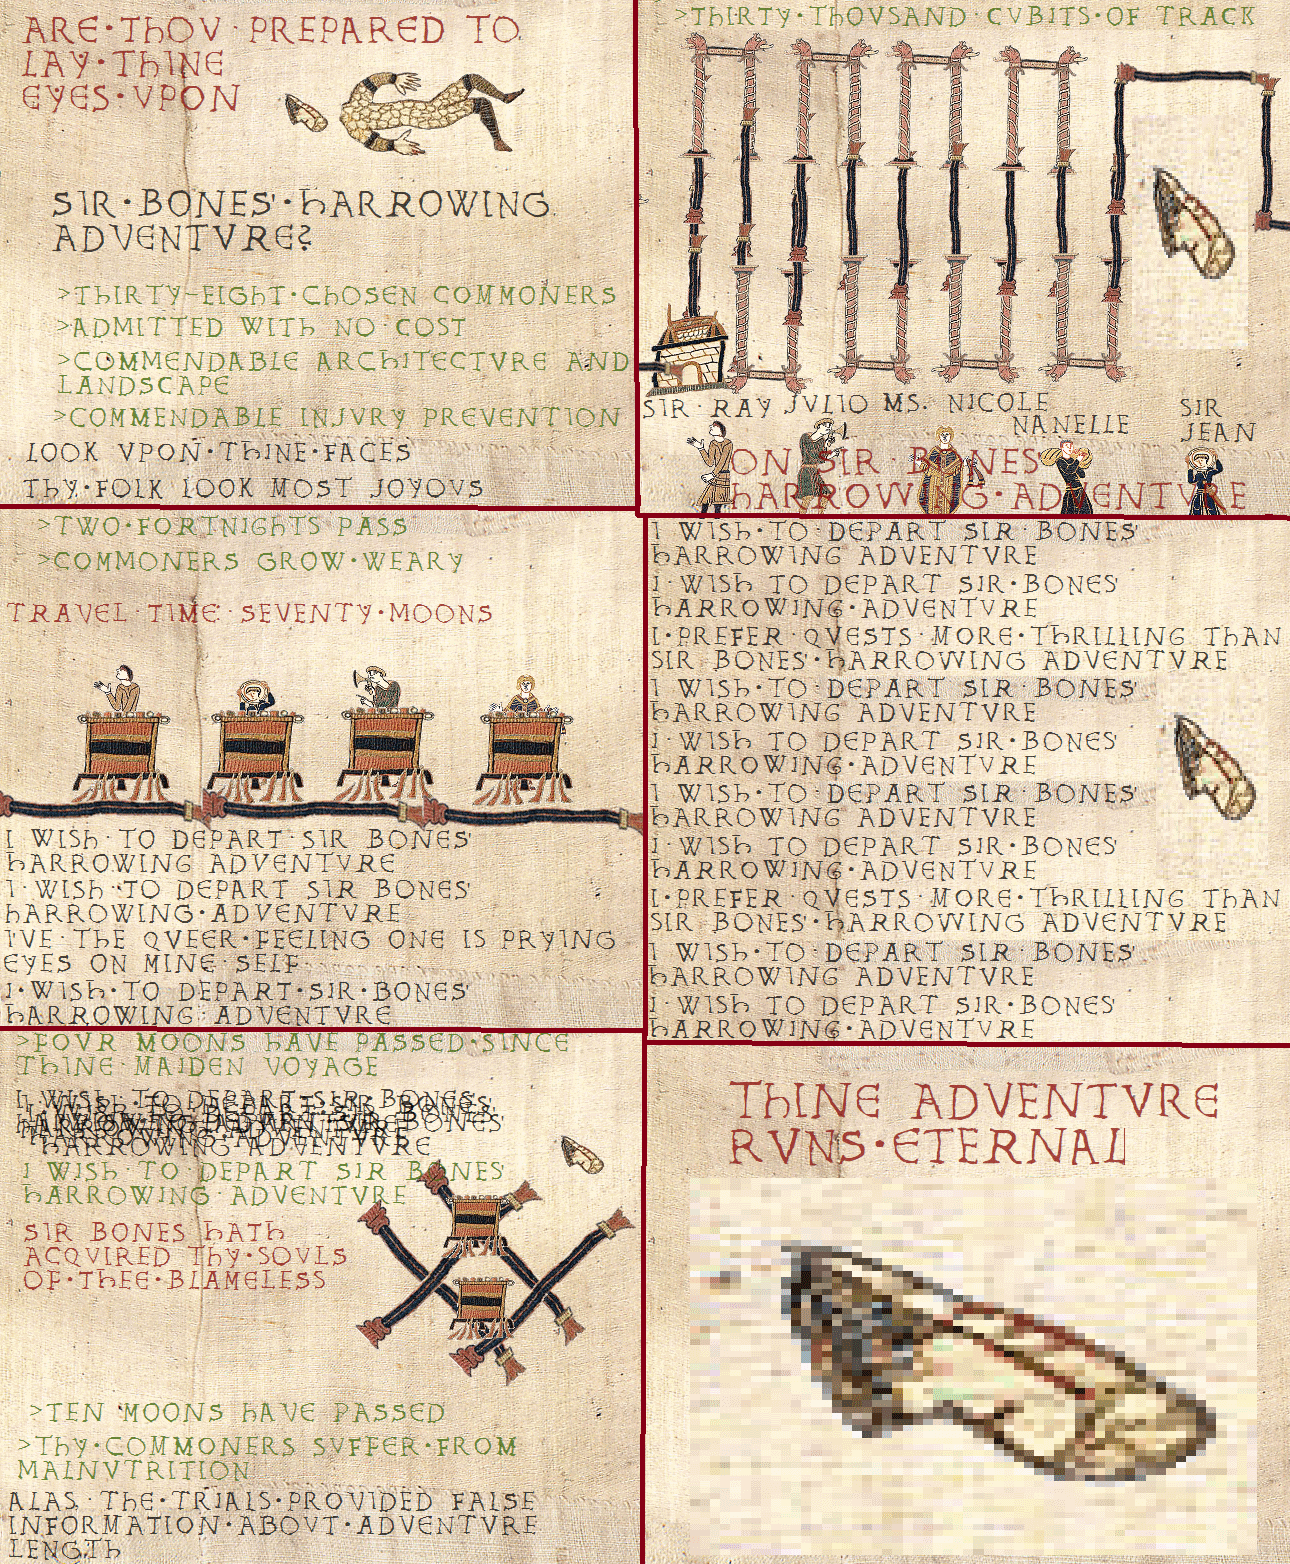 ARE·THOV·PREPARED TO
LAY·THINE
EYES·VPON
SIR·BONES'·HARROWING
ADVENTVRE?
>THIRTY-EIGHT·CHOSEN COMMONERS
>ADMITTED WITH NO·COST
>COMMENDABLE ARCHITECTVRE AND
LANDSCAPE
>COMMENDABLE INJVRY PREVENTION
LOOK VPON·THINE·FACES
THY·FOLK LOOK MOST JOYOVS
>THIRTY·THOVSAND·CVBITS·OF TRACK
SIR·RAY JVLIO MS. NICOLE
NANELLE
SIR
JEAN
ON SIR·BONES'
HARROWING·ADVENTVRE
>TWO·FORTNIGHTS PASS
>COMMONERS GROW·WEARY
TRAVEL TIME: SEVENTY·MOONS
I WISH·TO DEPART·SIR BONES'
HARROWING ADVENTVRE
I·WISH·TO DEPART SIR BONES'
HARROWING·ADVENTVRE
I'VE·THE QVEER·FEELING ONE IS PRYING
EYES ON MINE·SELF
I·WISH·TO DEPART·SIR·BONES'
HARROWING ADVENTVRE
I WISH·TO·DEPART SIR·BONES'
HARROWING ADVENTVRE
I·WISH TO DEPART SIR·BONES'
HARROWING·ADVENTVRE
I·PREFER·QVESTS·MORE·THRILLING THAN
SIR BONES'·HARROWING ADVENTVRE
I WISH·TO·DEPART SIR·BONES'
HARROWING ADVENTVRE
I·WISH TO DEPART SIR·BONES'
HARROWING·ADVENTVRE
I WISH·TO·DEPART SIR·BONES'
HARROWING ADVENTVRE
I·WISH TO DEPART SIR·BONES'
HARROWING·ADVENTVRE
I·PREFER·QVESTS·MORE·THRILLING THAN
SIR BONES'·HARROWING ADVENTVRE
I WISH·TO·DEPART SIR·BONES'
HARROWING ADVENTVRE
I·WISH TO DEPART SIR·BONES'
HARROWING·ADVENTVRE
>FOVR MOONS HAVE PASSED·SINCE
THINE MAIDEN VOYAGE
I·WISH·TO DEPART·SIR BONES'
HARROWING·ADVENTVRE
I WISH·TO·DEPART SIR BONES'
HARROWING·ADVENTVRE
SIR BONES HATH
ACQVIRED THY·SOVLS
OF·THEE·BLAMELESS
>TEN MOONS HAVE PASSED
>THY·COMMONERS SVFFER·FROM
MALNVTRITION
ALAS, THE·TRIALS·PROVIDED FALSE
INFORMATION·ABOVT·ADVENTVRE
LENGTH
THINE ADVENTVRE
RVNS·ETERNAL